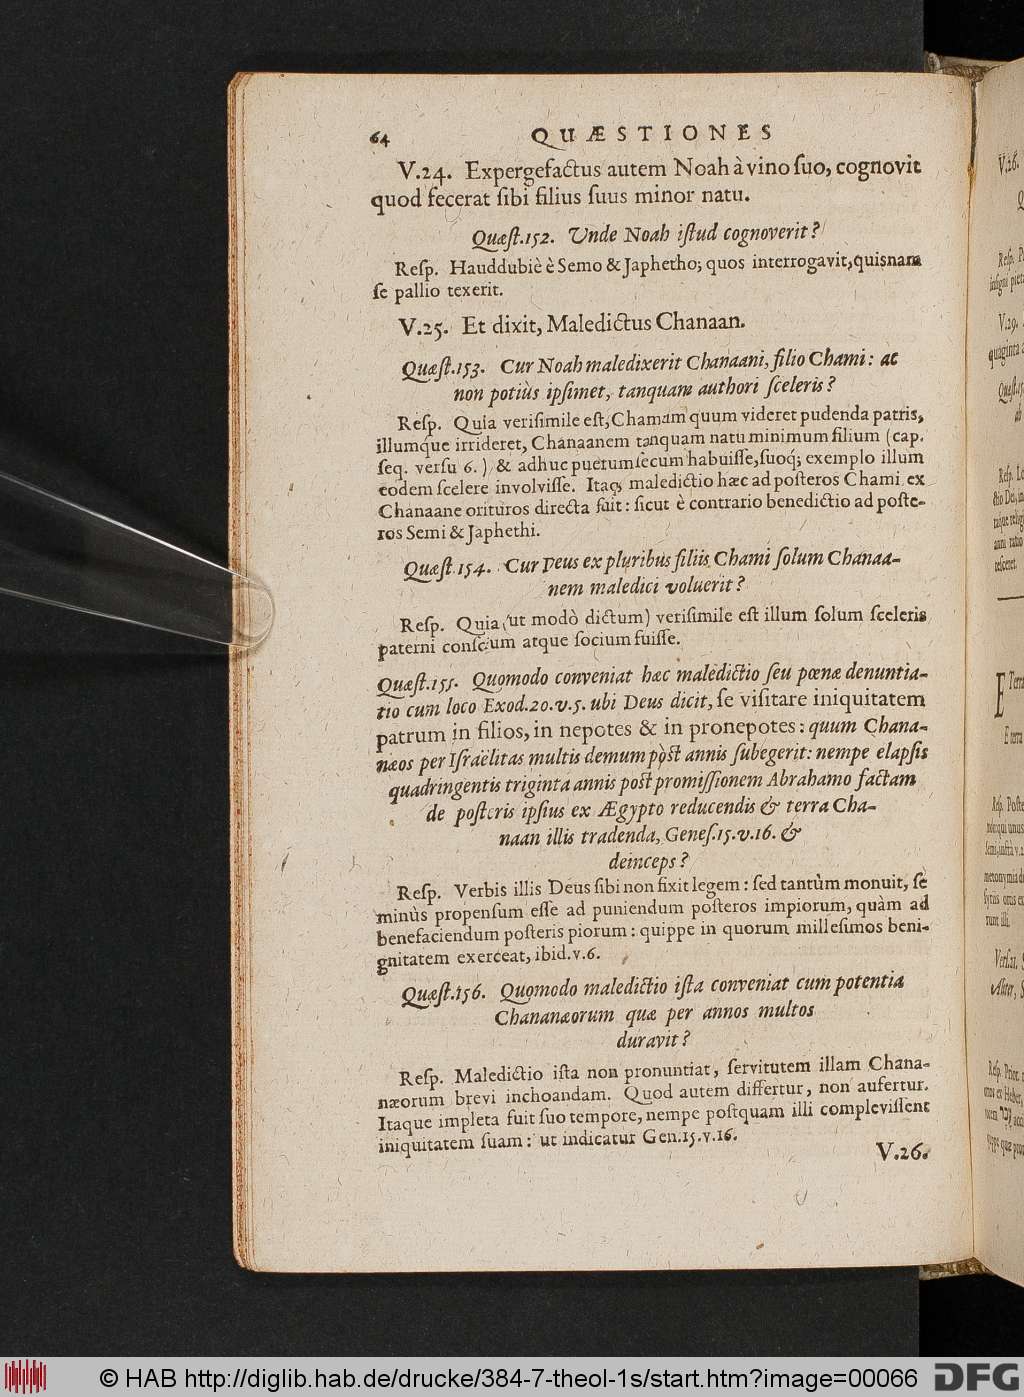 64 QUÆSTIONES
V.24. Expergefactus autem Noah à vino ſuo, cognovit
quod fecerat ſibi filius ſuus minor natu.
Quæſt.152. Unde Noah iſtud cognoverit?
Reſp. Hauddubiè è Semo & Japhetho; quos interrogavit, quisnam
ſe pallio texerit.
V.25. Et dixit, Maledictus Chanaan.
Quæſt.153. Cur Noah maledixerit Chanaani, filio Chami: ac
non potiùs ipſimet, tanquam authori ſceleris?
Reſp. Quia veriſimile eſt, Chamam quum videret pudenda patris,
illumque irrideret, Chanaanem tanquam natu minimum filium (cap.
ſeq. verſu 6.) & adhuc puerum ſecum habuiſſe, ſuoq́; exemplo illum
eodem ſcelere involviſſe. Itaq; maledictio hæc ad poſteros Chami ex
Chanaane orituros directa fuit: ſicut è contrario benedictio ad poſte-
ros Semi & Japhethi.
Quæſt.154. Cur Deus ex pluribus filiis Chami ſolum Chanaa-
nem maledici voluerit?
Reſp. Quia (ut modò dictum) veriſimile eſt illum ſolum ſceleris
paterni conſcium atque ſocium fuiſſe.
Quæſt.155. Quomodo conveniat hæc maledictio ſeu pœnæ denuntia-
tio cum loco Exod.20.v.5. ubi Deus dicit, ſe viſitare iniquitatem
patrum in filios, in nepotes & in pronepotes: quum Chana-
næos per Iſraëlitas multis demum pòſt annis ſubegerit: nempe elapſis
quadringentis triginta annis poſt promiſſionem Abrahamo factam
de poſteris ipſius ex Ægypto reducendis & terra Cha-
naan illis tradenda, Geneſ.15.v.16. &
deinceps?
Reſp. Verbis illis Deus ſibi non fixit legem: ſed tantùm monuit, ſe
minùs propenſum eſſe ad puniendum poſteros impiorum, quàm ad
benefaciendum poſteris piorum: quippe in quorum milleſimos beni-
gnitatem exerceat, ibid.v.6.
Quæſt.156. Quomodo maledictio iſta conveniat cum potentia
Chananæorum quæ per annos multos
duravit?
Reſp. Maledictio iſta non pronuntiat, ſervitutem illam Chana-
næorum brevi inchoandam. Quod autem differtur, non aufertur.
Itaque impleta fuit ſuo tempore, nempe poſtquam illi compleviſſent
iniquitatem ſuam: ut indicatur Gen.15.v.16.
V.26.
V.26.
V.29.
© HAB http://diglib.hab.de/drucke/384-7-theol-1s/start.htm?image=00066 DFG